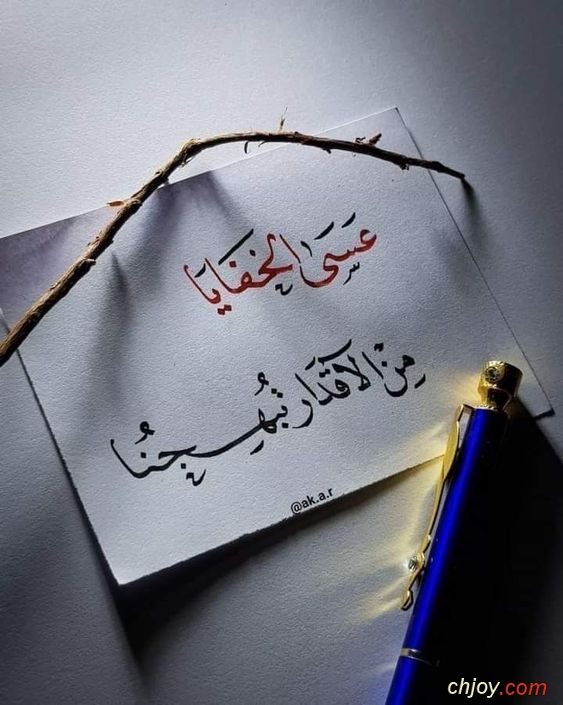 عَسَى الخفَايَا
مِنْ الاَقدَار تُبهِجنُا
@ak.a.r
chjoy.com